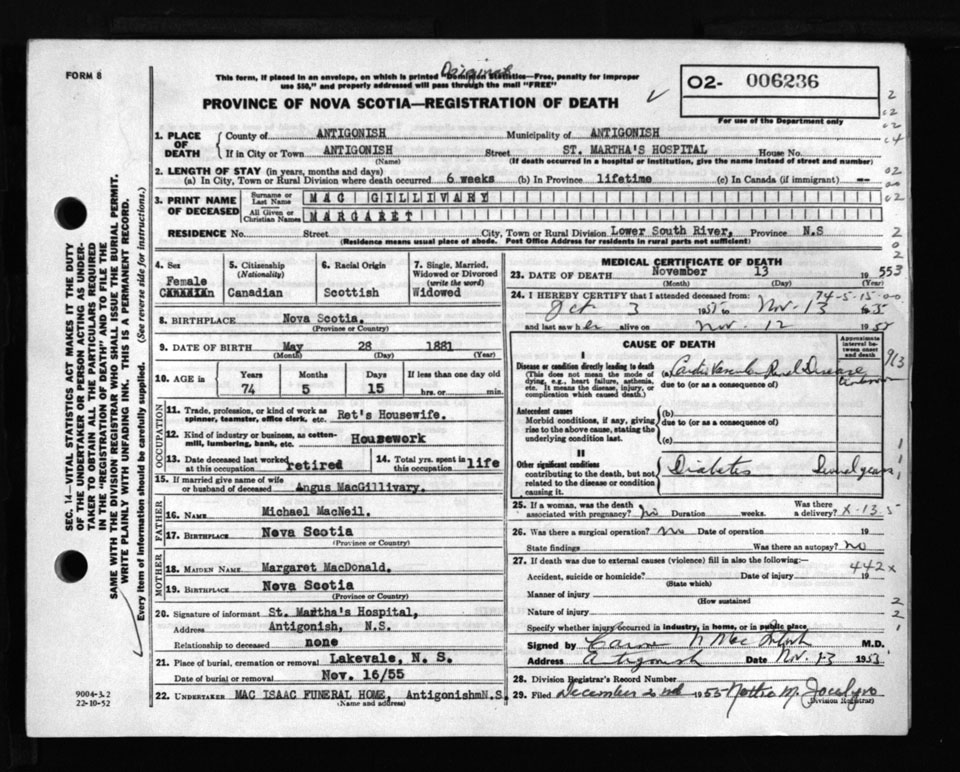 FORM 8
Original
This form, if placed in an envelope, on which is printed "Dominion Statistics—Free, penalty for improper
use $50," and properly addressed will pass through the mail "FREE"
PROVINCE OF NOVA SCOTIA—REGISTRATION OF DEATH
O2- 006236
For use of the Department only
SEC. 14—VITAL STATISTICS ACT MAKES IT THE DUTY
OF THE UNDERTAKER OR PERSON ACTING AS UNDER-
TAKER TO OBTAIN ALL THE PARTICULARS REQUIRED
IN THE "REGISTRATION OF DEATH" AND TO FILE THE
SAME WITH THE DIVISION REGISTRAR WHO SHALL ISSUE THE BURIAL PERMIT.
WRITE PLAINLY WITH UNFADING INK. THIS IS A PERMANENT RECORD.
Every item of information should be carefully supplied. (See reverse side for instructions.)
1. PLACE OF DEATH County of ANTIGONISH Municipality of ANTIGONISH
If in City or Town ANTIGONISH Street ST. MARTHA'S HOSPITAL House No.
(Name) (If death occurred in a hospital or institution, give the name instead of street and number)
2. LENGTH OF STAY (in years, months and days)
(a) In City, Town or Rural Division where death occurred 6 weeks (b) In Province lifetime (c) In Canada (if immigrant) --
3. PRINT NAME OF DECEASED Surname or Last Name MAC GILLIVARY
All Given or Christian Names MARGARET
RESIDENCE No. Street City, Town or Rural Division Lower South River, Province N.S
(Residence means usual place of abode. Post Office Address for residents in rural parts not sufficient)
4. Sex Female
5. Citizenship (Nationality) Canadian
6. Racial Origin Scottish
7. Single, Married, Widowed or Divorced (write the word) Widowed
8. BIRTHPLACE Nova Scotia.
(Province or Country)
9. DATE OF BIRTH May 28 1881
(Month) (Day) (Year)
10. AGE in Years 74 Months 5 Days 15 If less than one day old hrs. or min.
OCCUPATION
11. Trade, profession, or kind of work as spinner, teamster, office clerk, etc. Ret's Housewife.
12. Kind of industry or business, as cotton-mill, lumbering, bank, etc. Housework
13. Date deceased last worked at this occupation retired
14. Total yrs. spent in this occupation life
15. If married give name of wife or husband of deceased Angus MacGillivary.
FATHER
16. NAME Michael MacNeil.
17. BIRTHPLACE Nova Scotia
(Province or Country)
MOTHER
18. MAIDEN NAME Margaret MacDonald.
19. BIRTHPLACE Nova Scotia
(Province or Country)
20. Signature of informant St. Martha's Hospital,
Address Antigonish, N.S.
Relationship to deceased none
21. Place of burial, cremation or removal Lakevale, N. S.
Date of burial or removal Nov. 16/55
22. UNDERTAKER MAC ISAAC FUNERAL HOME, AntigonishmN.S.
(Name and address)
9004-3.2
22-10-52
MEDICAL CERTIFICATE OF DEATH
23. DATE OF DEATH November 13 1955
(Month) (Day)
24. I HEREBY CERTIFY that I attended deceased from:
Oct 3 1955 to Nov. 13 1955
74-5-15-00
and last saw her alive on Nov. 12 1955
CAUSE OF DEATH
Approximate interval between onset and death
I
Disease or condition directly leading to death
(This does not mean the mode of dying, e.g., heart failure, asthenia, etc. It means the disease, injury, or complication which caused death.)
(a) Cardio Vascular Renal Disease unknown
due to (or as a consequence of)
Antecedent causes
Morbid conditions, if any, giving rise to the above cause, stating the underlying condition last.
(b)
due to (or as a consequence of)
(c)
II
Other significant conditions
contributing to the death, but not related to the disease or condition causing it.
Diabetes Several years
25. If a woman, was the death associated with pregnancy? no Duration weeks. Was there a delivery?
X-13.5
26. Was there a surgical operation? no Date of operation 19
State findings Was there an autopsy? no
27. If death was due to external causes (violence) fill in also the following:
442x
Accident, suicide or homicide? Date of injury 19
(State which)
Manner of injury
(How sustained
Nature of injury
Specify whether injury occurred in industry, in home, or in public place.
Signed by N MacIntosh M.D.
Address Antigonish Date Nov. 13 1955
28. Division Registrar's Record Number
29. Filed December 2nd 1955
(Division Registrar)